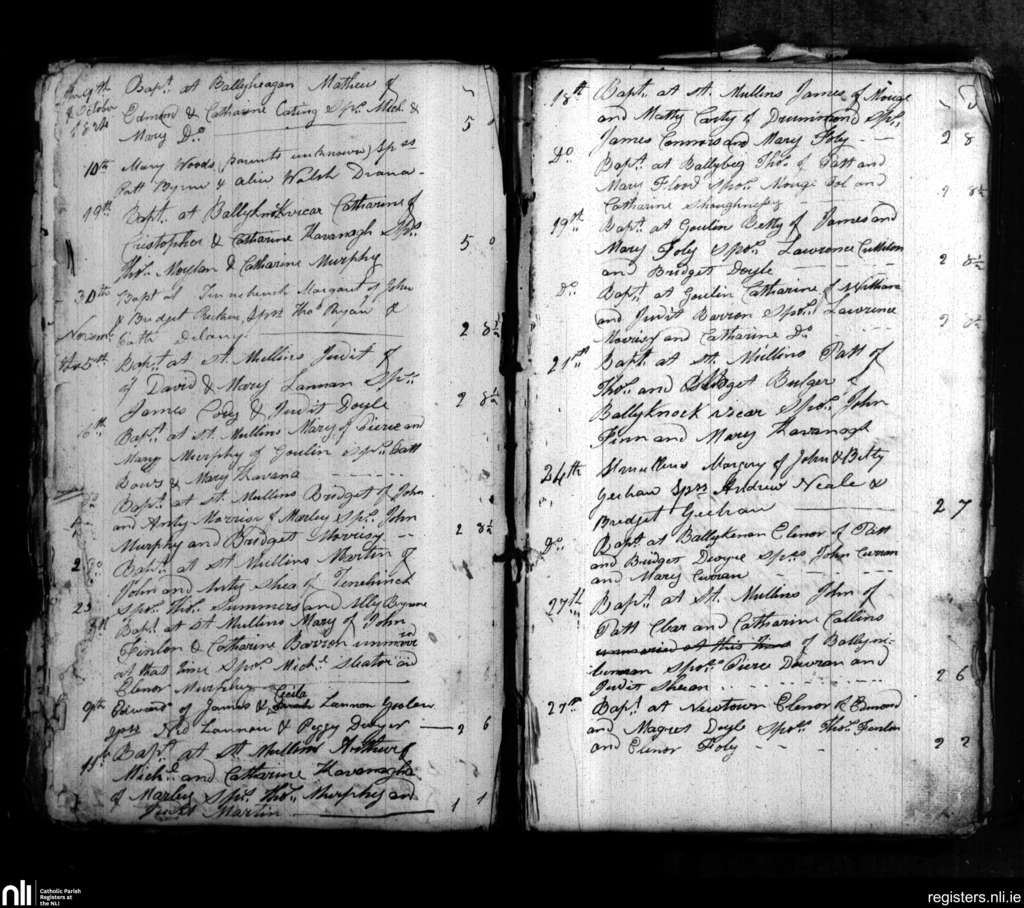 9th Bapt. at Ballyheagan Mathew of
October Edmond & Catharine Cating Sprs. Mich. &
1824 Mary Do. 5 0
10th Mary Woods (parents unknown) Sprss
Patt Byrne & Alice Walsh Drana-
19th Bapt. at Ballyknockvicar Catharine of
Cristopher & Catharine Kavanagh Sprs. 5 0
Thos. Moylan & Catharine Murphy
30th Bapt at Tinnehinch Margaret of John
& Bridget Sprss Thos Ryan &
Novem Cath Delany 2 8½
5th Bapt. at St. Mullins Judit of
of David & Mary Lannan Sprs.
James Cody & Judit Doyle 2 8½
6th Bapt. at St. Mullins Mary of Pierce and
Mary Murphy of Goulin Sprs. Patt
Dows & Mary Kavana
Bapt. at St. Mullins Bridget of John
and Anty Morrisy of Marley Sprs. John
Murphy and Bridget Morrisy 2 8½
Bapt. at St Mullins Martin of
John and Anty Shea of Tenehinch
Spos. Thos. Summers and Ally Byrne
Bapt. at St Mullins Mary of John
Fenlon & Catharine Barron
at that time Spos. Mich. Sleator and
Elenor Murphy
Cecila
9th Edward of James & Lannon Goolen
sprs Ned Lannon & Peggy Dwyer 2 6
11th Bapt. at St Mullins Arthur of
Mich. and Catharine Kavanagh
of Marley Sprs. Thos. Murphy and
Judit Martin 1 1
18th Bapt. at St. Mullins James of Mouge
and Matty Carty of Drummond Sprs.
James Connors and Mary Foly 2 8
Do. Bapt. at Ballybeg Thos. of Patt and
Mary Flood Spos. Mouge Fol and
Catharine Shaughnessy 2 8½
19th Bapt. at Goulin Betty of James and
Mary Foly Spos. Lawrence Cullelon
and Bridget Doyle 2 8½
Do. Bapt. at Goulin Catharine of William
and Judit Barron Spos. Lawrence
Morrisy and Catharine Do.
21st Bapt. at St. Mullins Patt of
Thos. and Bridget Bulger of
Ballyknock vicar Spos. John
Finn and Mary Kavanagh
24th St mullins Margery of John & Betty
Geehan Sprs Andrew Neale &
Bridget Geehan 2 7
Do. Bapt. at Ballykenan Elenor of Patt
and Bridget Dwyre Sprs John Curran
and Mary Curran
27th Bapt. at St. Mullins John of
Patt and Catharin Collins
unmaried at this time of
Spos. Pierce Dowran and
Judit Shean 2 6
27th Bapt. at Newtown Elenor of Edmond
and Magret Doyle Spos. Thos. Fenlon
and Elenor Foly 2 2
nli Catholic Parish
Registers at
the NLI
registers.nli.ie